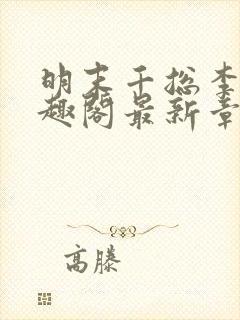 明末千总李
趣阁最新章
高滕